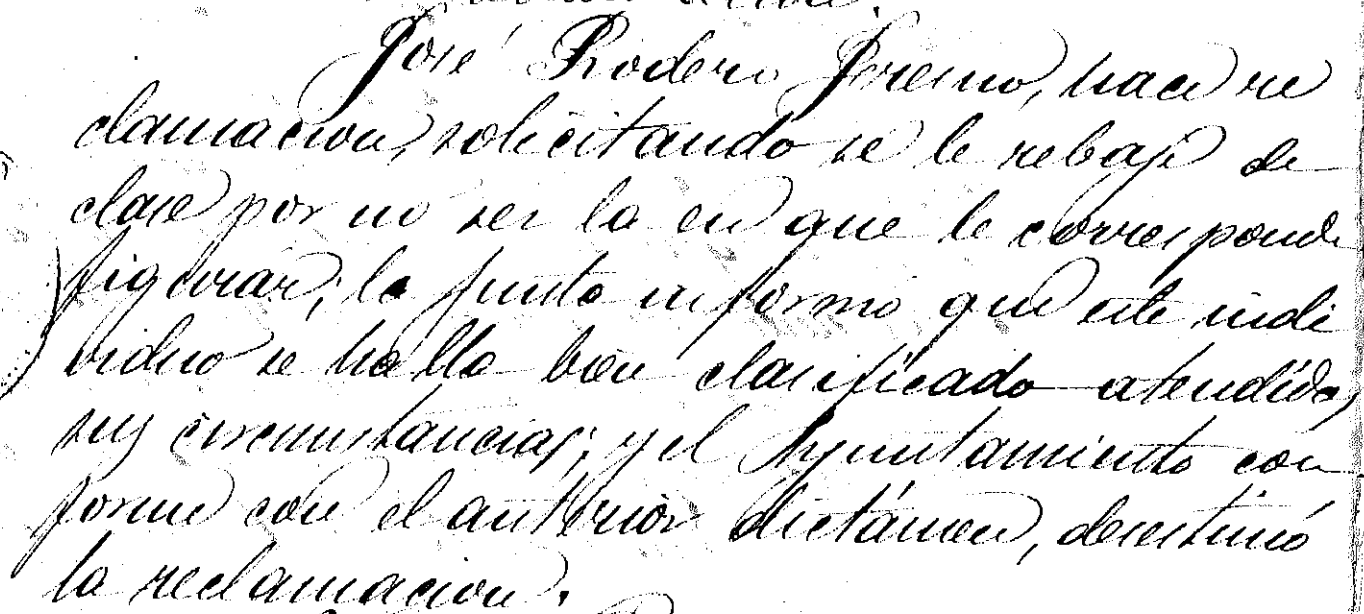 José Rodero Moreno, hace re
clamacion, solicitando se le rebaje de
clase por no ser la en que le corresponde
figurar; la junta informó que este indi
viduo se halla bien clasificado atendidas
sus circunstancias; y el Ayuntamiento con
forme con el anterior dictámen, desestimó
la reclamacion.